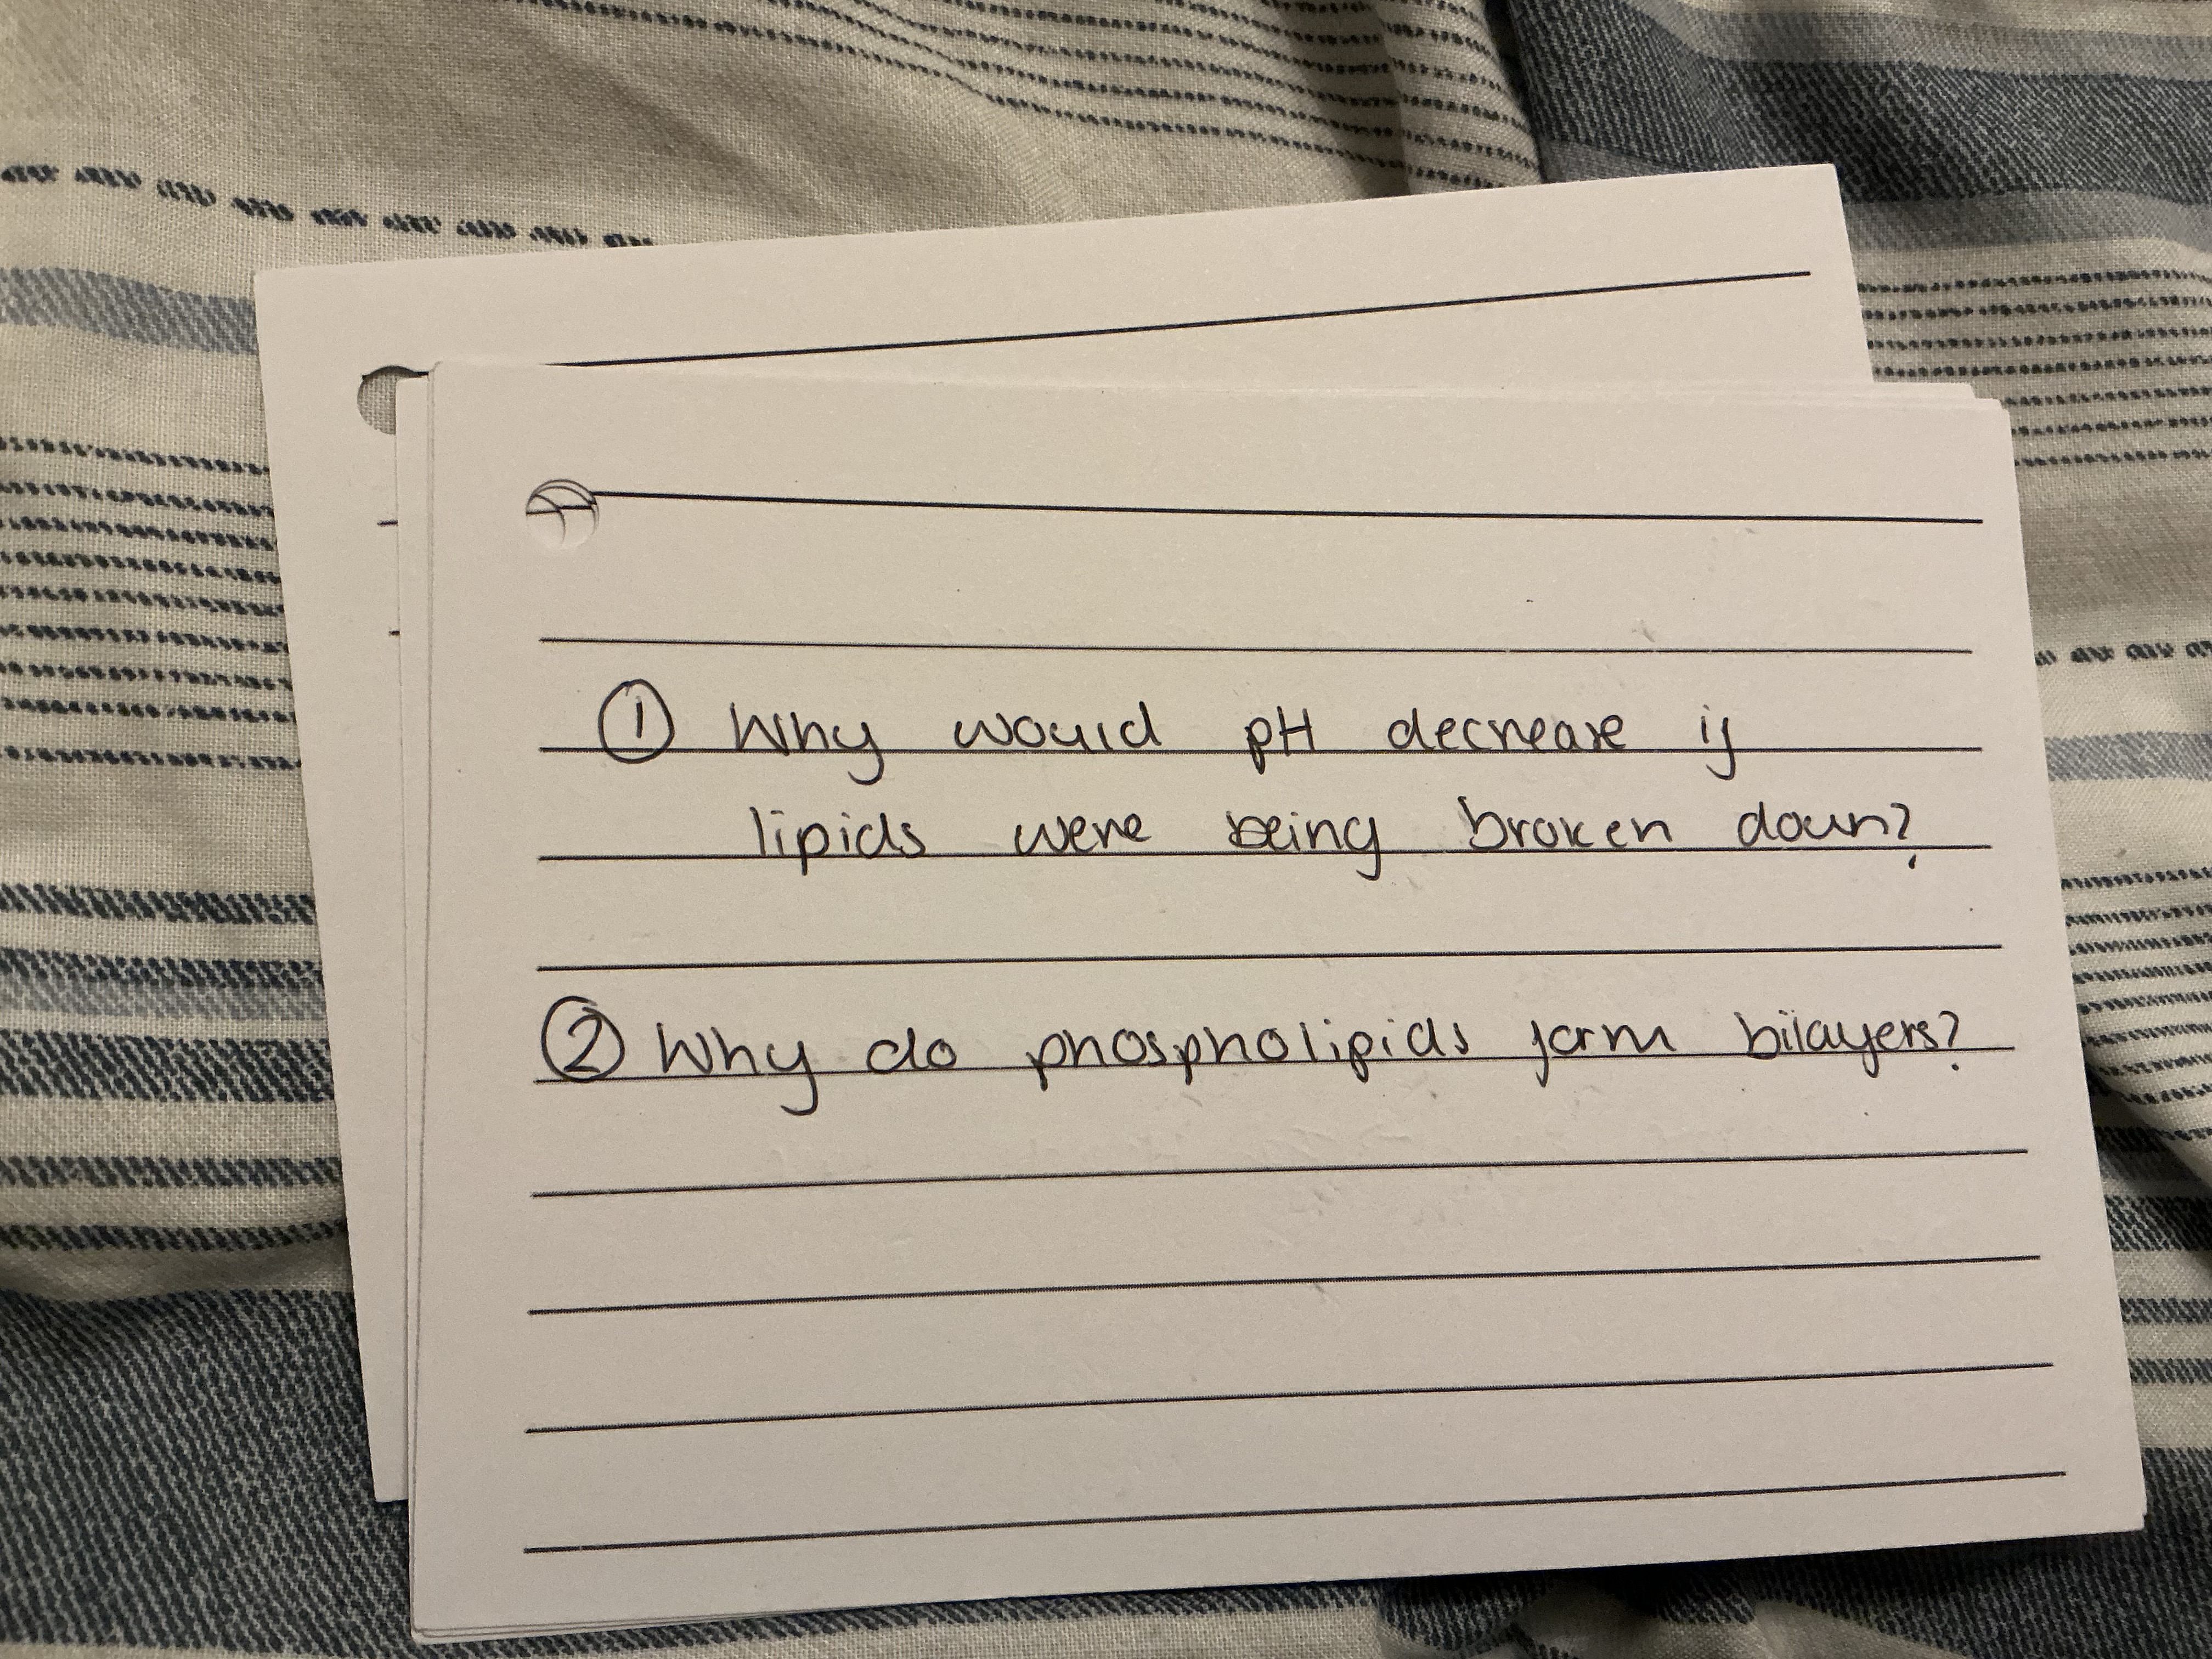 ① Why would pH decrease if
lipids were being broken down?
② Why do phospholipids form bilayers?